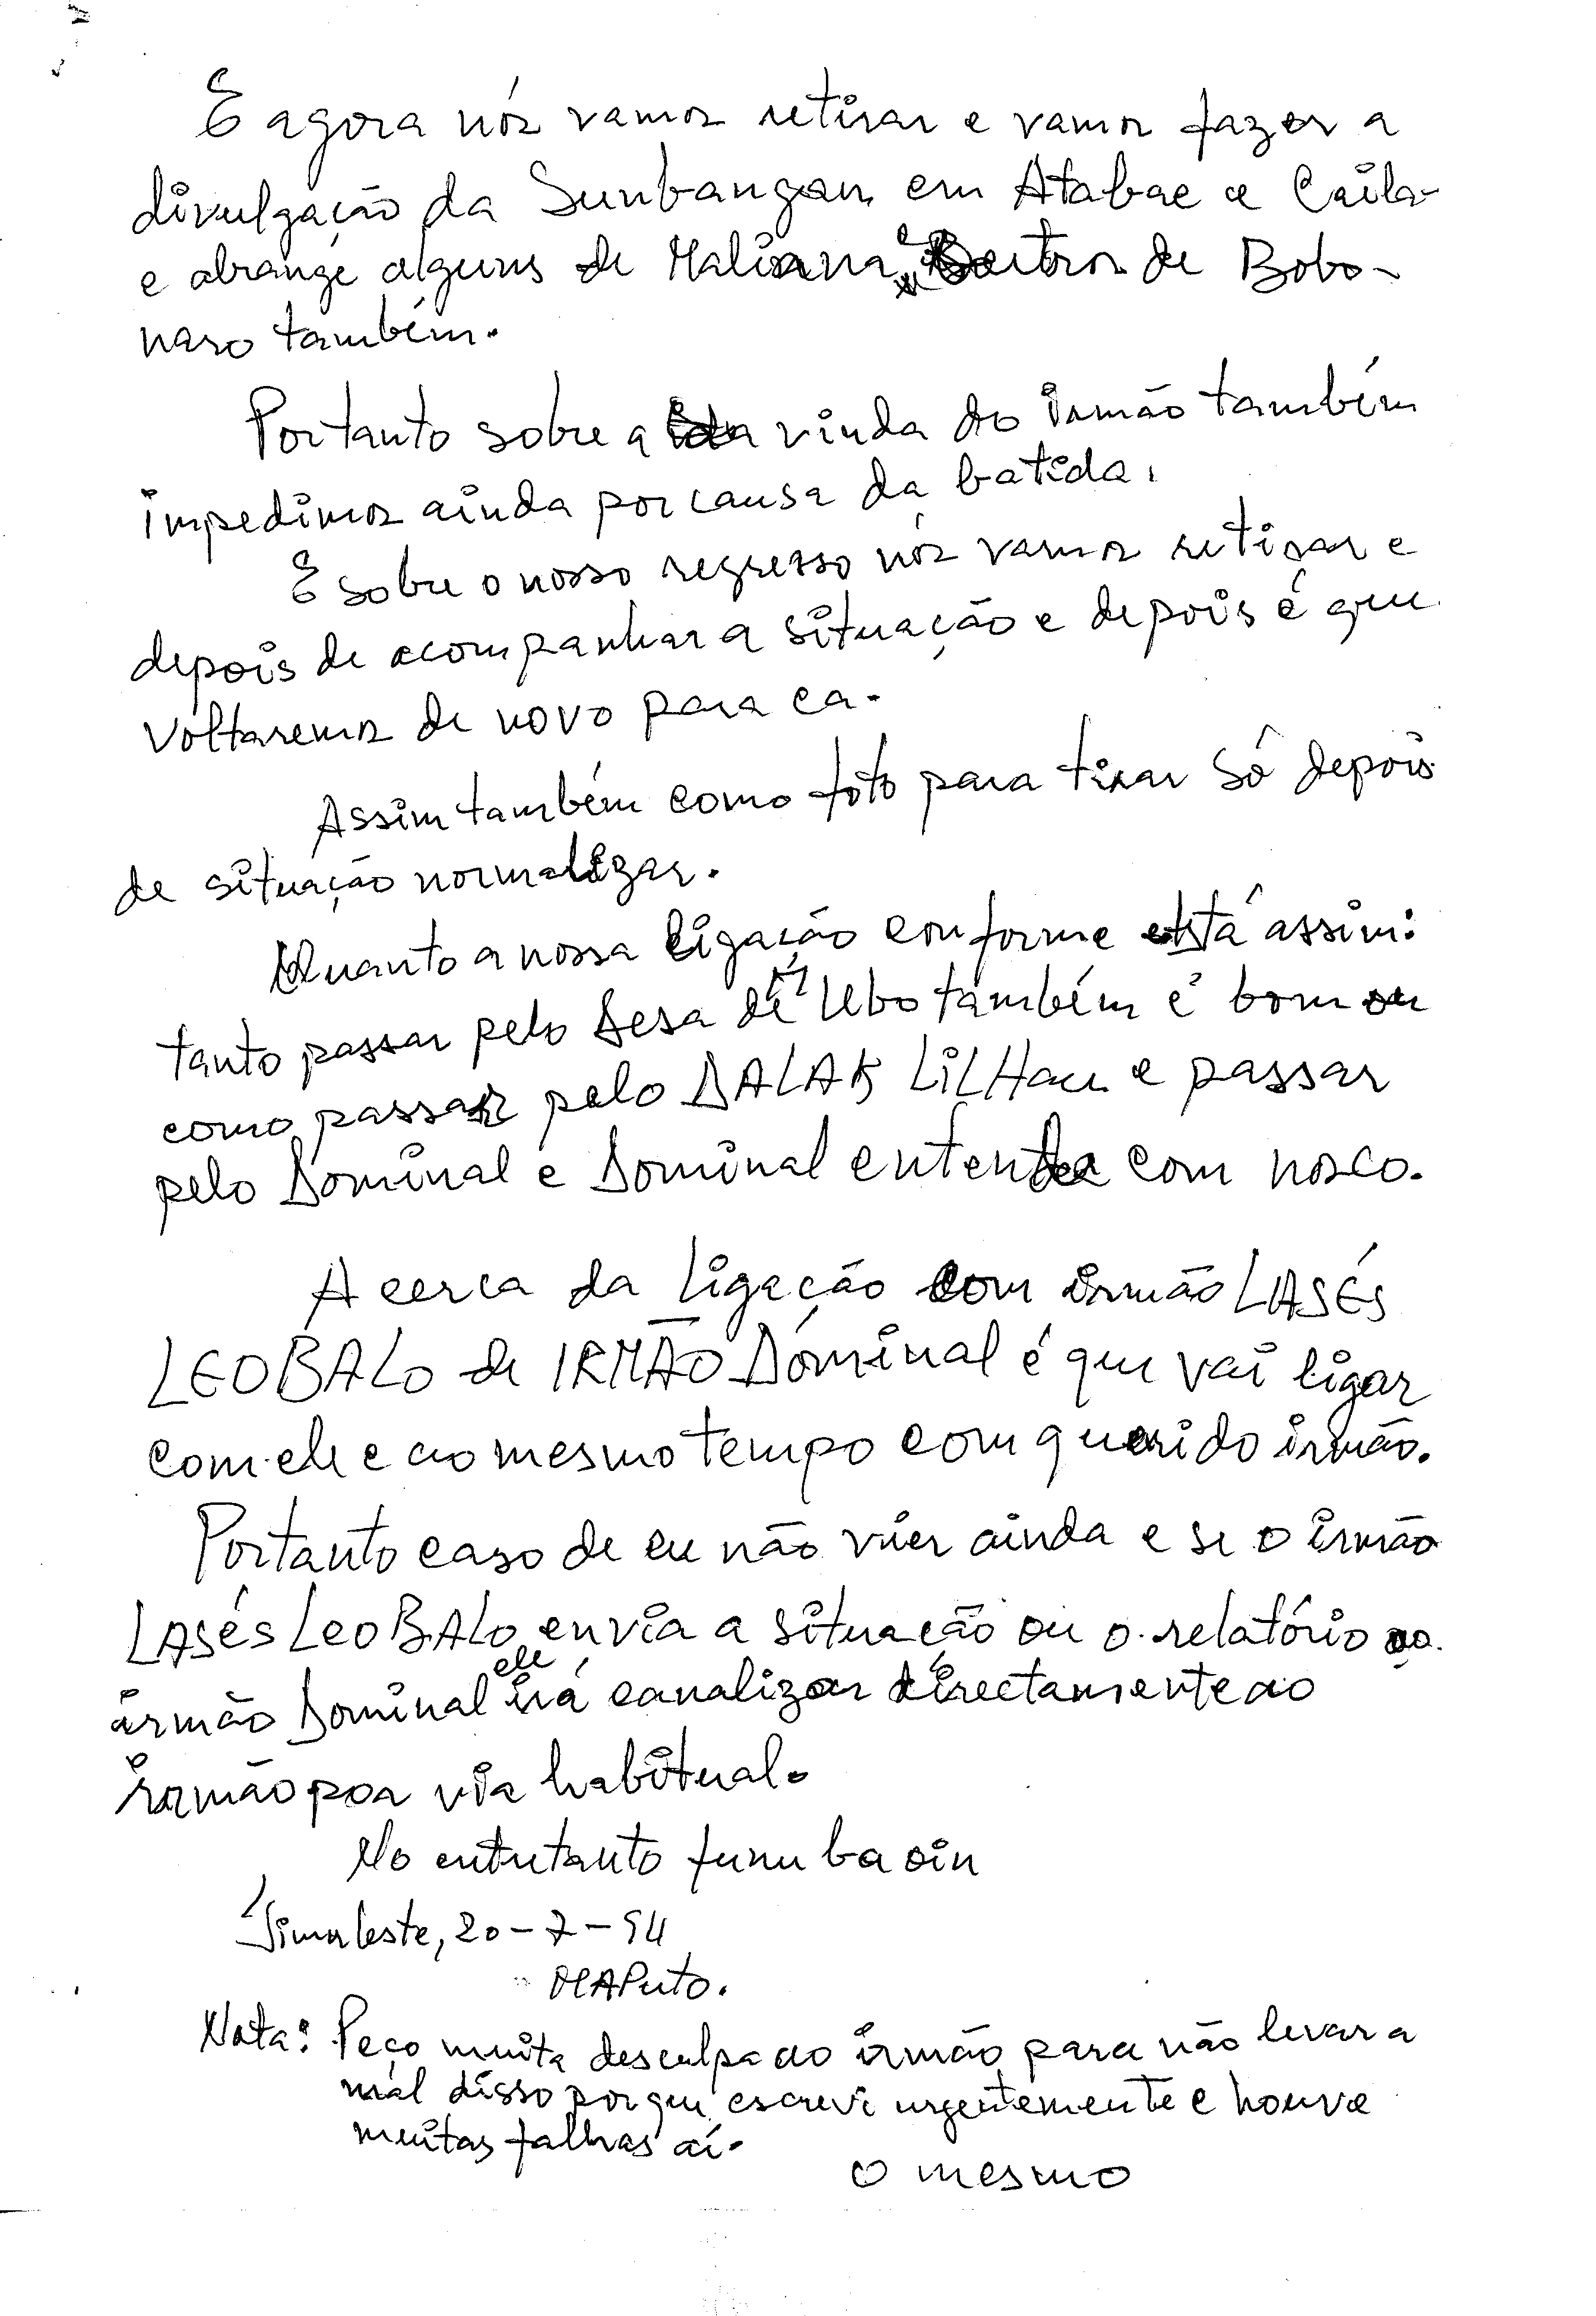 E agora nós vamos retirar e vamos fazer a
divulgação da Sunbangan em Atabae e Caila-
e abrange alguns de Maliana e outros de Bobo-
naro também.
Portanto sobre a vinda do irmão também
impedimos ainda por causa da batida.
E sobre o nosso regresso nós vamos retirar e
depois de acompanhar a situação e depois é que
voltaremos de novo para ca.
Assim também como foto para tirar só depois
de situação normalizar.
Quanto a nossa ligação conforme está assim:
tanto passar pelo Sesa de Ubo também é bom ou
como passar pelo DALAK LiLHau e passar
pelo Dominal e Dominal entende com nosco.
Acerca da ligação com irmão LASÉS
LEOBALO de IRMÃO Dominal é que vai ligar
com ele e ao mesmo tempo com querido irmão.
Portanto caso de eu não vier ainda e se o irmão
LASÉS LEOBALO envia a situação ou o relatório ao
irmão Dominal ele irá canalizar directamente ao
irmão por via habitual.
No entretanto funu ba oin
Timorleste, 20-7-94
MAPuto.
Nota: Peço muita desculpa ao irmão para não levar a
mal disso porque escrevi urgentemente e houve
muitas falhas aí.
O mesmo